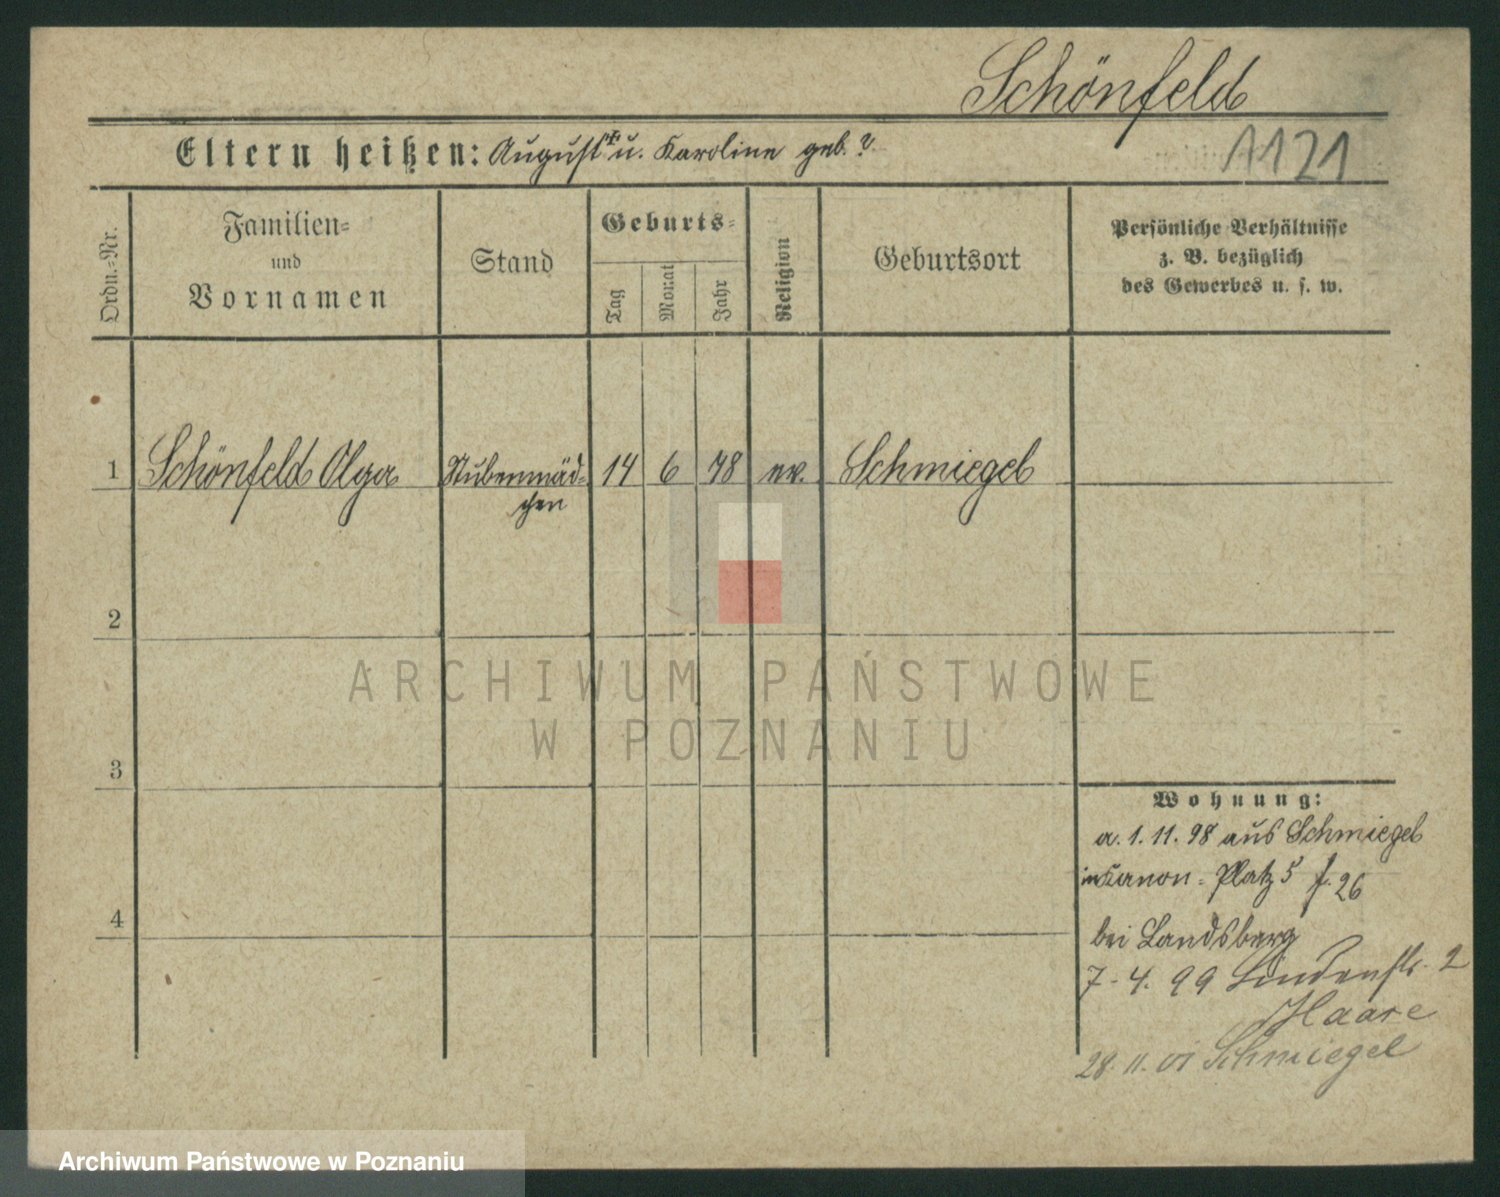 Schönfeld
Eltern heißen: August + u. Karoline geb. ?
1121
Ordn.-Nr.
Familien-
und
Vornamen
Stand
Geburts-
Tag
Monat
Jahr
Religion
Geburtsort
Persönliche Verhältnisse
z. B. bezüglich
des Gewerbes u. s. w.
1 Schönfeld Olga Stubenmäd- 14 6 78 ev. Schmiegel
chen
2
ARCHIWUM PAŃSTWOWE
W POZNANIU
3
Wohnung:
a. 1. 11. 98 aus Schmiegel
in Kanon-Platz 5 f. 26
4
bei Landsberg
7. 4. 99 Lindenstr. 2
Haare
28. 11. 01 Schmiegel
Archiwum Państwowe w Poznaniu